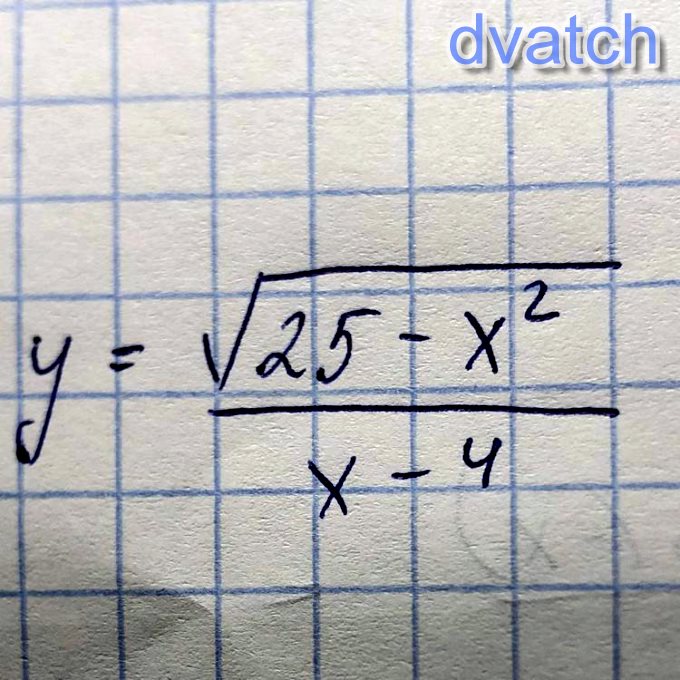 dvatch
y = √(25 - x²) / (x - 4)